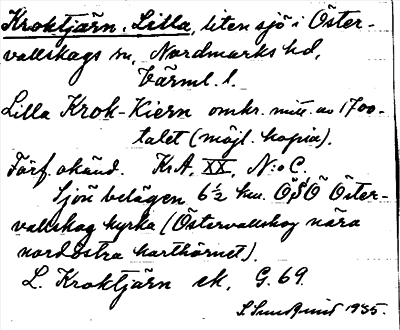 Kroktjärn, Lilla, liten sjö i Öster-
vallskogs sn, Nordmarks hd,
Värml. l.
Lilla Krok-Kiern omkr. mitt. av 1700-
talet (möjl. kopia).
Förf. okänd. KrA, XX, N:o C.
Sjön belägen 6½ km. ÖSÖ Öster-
vallskog kyrka (Östervallskog nära
nordöstra karthörnet).
L. Kroktjärn ek. G. 69.
1935.